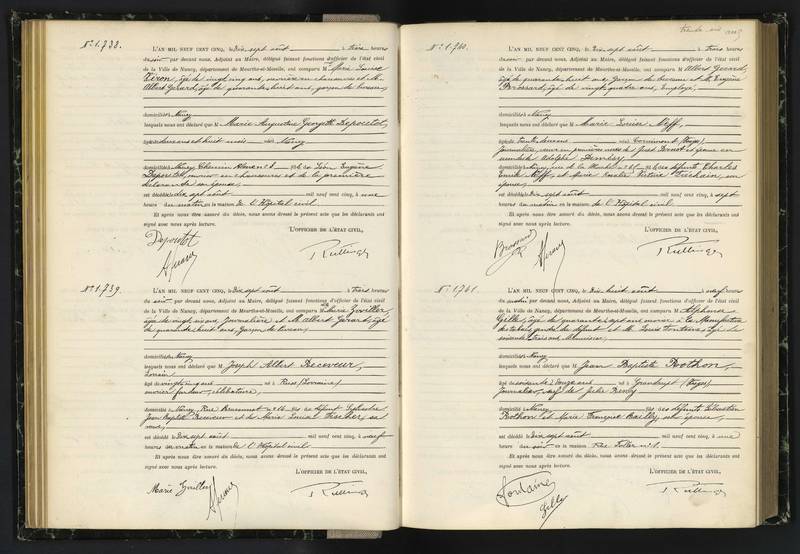 N° 1.738.
L'AN MIL NEUF CENT CINQ, le Dix sept août à trois heures
du soir par devant nous, Adjoint au Maire, délégué faisant fonctions d'officier de l'état civil
de la Ville de Nancy, département de Meurthe-et-Moselle, ont comparu M Marie Louise
âgée de vingt cinq ans, ouvrière en chaussures et M.
Albert Gérard, âgé de quarante huit ans, garçon de bureau,
domiciliés Nancy
lesquels nous ont déclaré que M Marie Augustine Georgette Depoutot,
âgée deux ans et huit mois née Nancy
domiciliée Nancy, Chemin fille de Léon Eugène
Depoutot, ouvrier en chaussures et de la première
déclarante son épouse,
est décédée le dix sept août mil neuf cent cinq, à une
heure du matin en la maison de l'Hôpital civil
Et après nous être assuré du décès, nous avons dressé le présent acte que les déclarants ont
signé avec nous après lecture.
L'OFFICIER DE L'ÉTAT CIVIL,
Depoutot
N° 1.739.
L'AN MIL NEUF CENT CINQ, le Dix sept août à trois heures
du soir par devant nous, Adjoint au Maire, délégué faisant fonctions d'officier de l'état civil
de la Ville de Nancy, département de Meurthe-et-Moselle, ont comparu M Marie
âgée de vingt six ans, Journalière et M. Albert Gérard, âgé
de quarante huit ans, Garçon de bureau,
domiciliés Nancy
lesquels nous ont déclaré que M Joseph Albert Receveur,
âgé de vingt cinq ans né à (Lorraine)
ouvrier fondeur, célibataire,
domicilié à Nancy, Rue fils de défunt Sylvestre
Jean Baptiste Receveur et de Marie Louise Fischer, sa
veuve,
est décédé le Dix sept août mil neuf cent cinq, à neuf
heures du matin en la maison de l'Hôpital civil
Et après nous être assuré du décès, nous avons dressé le présent acte que les déclarants ont
signé avec nous après lecture.
L'OFFICIER DE L'ÉTAT CIVIL,
Marie
N° 1.740.
L'AN MIL NEUF CENT CINQ, le Dix sept août à trois heures
du soir par devant nous, Adjoint au Maire, délégué faisant fonctions d'officier de l'état civil
de la Ville de Nancy, département de Meurthe-et-Moselle, ont comparu M Albert Gérard,
âgé de quarante huit ans, Garçon de bureau et M. Eugène
Brossard, âgé de vingt quatre ans, Employé,
domiciliés Nancy
lesquels nous ont déclaré que M Marie Louise Neff,
âgée de trente deux ans née Cornimont (Vosges)
Journalière, veuve en premières noces de
secondes Adolphe
domiciliée Nancy, rue de la fille de défunt Charles
Emile Neff, et Marie Victoire son
épouse,
est décédée le Dix sept août mil neuf cent cinq, à sept
heures du matin en la maison de l'Hôpital civil
Et après nous être assuré du décès, nous avons dressé le présent acte que les déclarants ont
signé avec nous après lecture.
L'OFFICIER DE L'ÉTAT CIVIL,
Brossard
N° 1.741.
L'AN MIL NEUF CENT CINQ, le Dix huit août à neuf heures
du matin par devant nous, Adjoint au Maire, délégué faisant fonctions d'officier de l'état civil
de la Ville de Nancy, département de Meurthe-et-Moselle, ont comparu M Alphonse
Gille, âgé de quarante sept ans, ouvrier à la Manufacture
des tabacs, gendre du défunt et M. Louis Fontaine, âgé de
soixante trois ans, Menuisier,
domiciliés Nancy
lesquels nous ont déclaré que M Jean Baptiste Bothon,
âgé de soixante douze ans né à Grandrupt (Vosges)
Journalier, veuf de Julie
domicilié à Nancy, fils de défunts Sébastien
Bothon et Marie Françoise Bailly, son épouse,
est décédé le Dix sept août mil neuf cent cinq, à une
heure du soir en la maison rue
Et après nous être assuré du décès, nous avons dressé le présent acte que les déclarants ont
signé avec nous après lecture.
L'OFFICIER DE L'ÉTAT CIVIL,
Fontaine
Gille